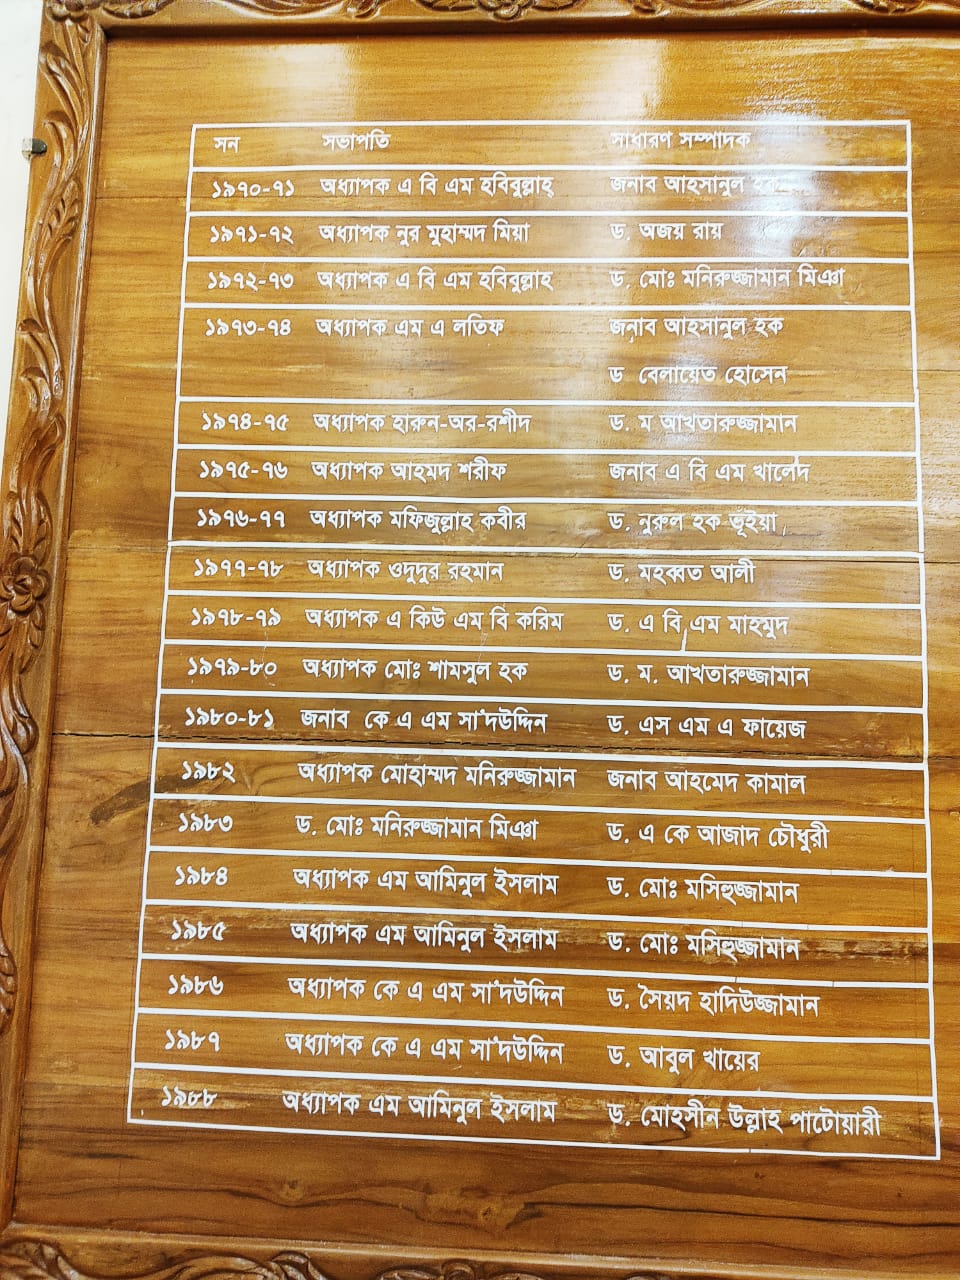 সন সভাপতি সাধারণ সম্পাদক
১৯৭০-৭১ অধ্যাপক এ বি এম হবিবুল্লাহ্ জনাব আহসানুল হক
১৯৭১-৭২ অধ্যাপক নুর মুহাম্মদ মিয়া ড. অজয় রায়
১৯৭২-৭৩ অধ্যাপক এ বি এম হবিবুল্লাহ ড. মোঃ মনিরুজ্জামান মিঞা
১৯৭৩-৭৪ অধ্যাপক এম এ লতিফ জনাব আহসানুল হক
ড বেলায়েত হোসেন
১৯৭৪-৭৫ অধ্যাপক হারুন-অর-রশীদ ড. ম আখতারুজ্জামান
১৯৭৫-৭৬ অধ্যাপক আহমদ শরীফ জনাব এ বি এম খালেদ
১৯৭৬-৭৭ অধ্যাপক মফিজুল্লাহ কবীর ড. নুরুল হক ভূঁইয়া
১৯৭৭-৭৮ অধ্যাপক ওদুদুর রহমান ড. মহব্বত আলী
১৯৭৮-৭৯ অধ্যাপক এ কিউ এম বি করিম ড. এ বি এম মাহমুদ
১৯৭৯-৮০ অধ্যাপক মোঃ শামসুল হক ড. ম. আখতারুজ্জামান
১৯৮০-৮১ জনাব কে এ এম সা'দউদ্দিন ড. এস এম এ ফায়েজ
১৯৮২ অধ্যাপক মোহাম্মদ মনিরুজ্জামান জনাব আহমেদ কামাল
১৯৮৩ ড. মোঃ মনিরুজ্জামান মিঞা ড. এ কে আজাদ চৌধুরী
১৯৮৪ অধ্যাপক এম আমিনুল ইসলাম ড. মোঃ মসিহুজ্জামান
১৯৮৫ অধ্যাপক এম আমিনুল ইসলাম ড. মোঃ মসিহুজ্জামান
১৯৮৬ অধ্যাপক কে এ এম সা'দউদ্দিন ড. সৈয়দ হাদিউজ্জামান
১৯৮৭ অধ্যাপক কে এ এম সা'দউদ্দিন ড. আবুল খায়ের
১৯৮৮ অধ্যাপক এম আমিনুল ইসলাম ড. মোহসীন উল্লাহ পাটোয়ারী